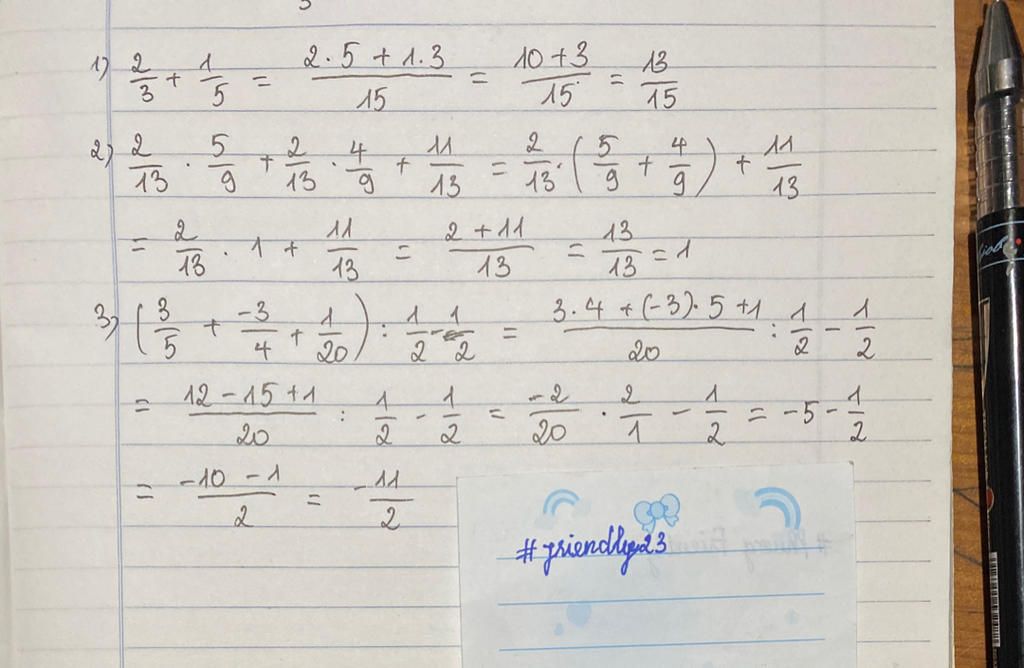 1) 2/3 + 1/5 = (2·5 + 1·3)/15 = (10+3)/15 = 13/15
2) 2/13 · 5/9 + 2/13 · 4/9 + 11/13 = 2/13 · (5/9 + 4/9) + 11/13
= 2/13 · 1 + 11/13 = (2 + 11)/13 = 13/13 = 1
3) (3/5 + -3/4 + 1/20) : 1/2 - 1/2 = (3·4 + (-3)·5 + 1)/20 : 1/2 - 1/2
= (12 - 15 + 1)/20 : 1/2 - 1/2 = -2/20 · 2/1 - 1/2 = -5 - 1/2
= (-10 - 1)/2 = -11/2
#friendly23